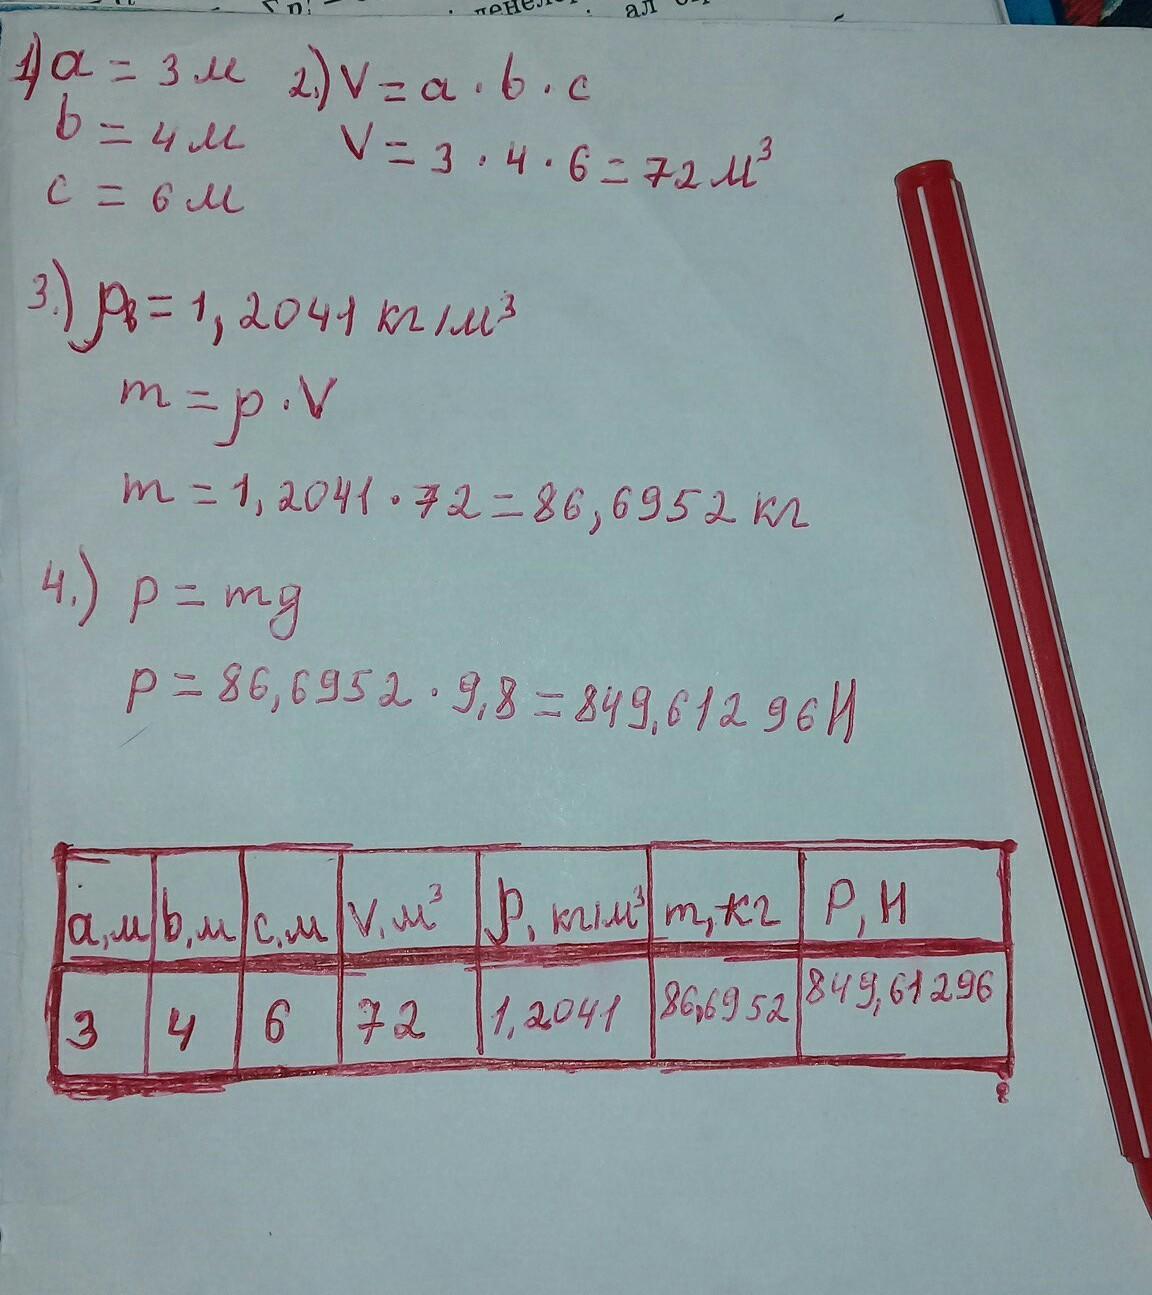 1) a = 3 м
b = 4 м
c = 6 м
2.) V = a · b · c
V = 3 · 4 · 6 = 72 м³
3.) ρв = 1,2041 кг/м³
m = ρ · V
m = 1,2041 · 72 = 86,6952 кг
4.) P = mg
P = 86,6952 · 9,8 = 849,61296 Н
а,м b,м с,м V,м³ ρ, кг/м³ m, кг P, Н
3 4 6 72 1,2041 86,6952 849,61296